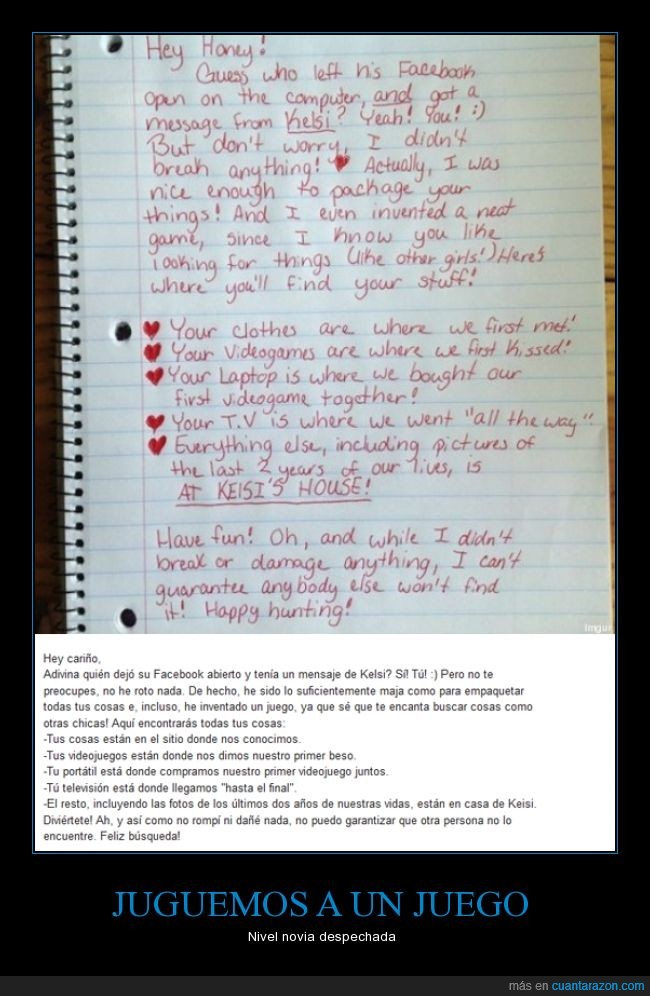 Hey Honey!
Guess who left his Facebook
open on the computer, and got a
message from Kelsi? Yeah! You! :)
But don't worry, I didn't
break anything! ♥ Actually, I was
nice enough to package your
things! And I even invented a neat
game, since I know you like
looking for things (like other girls!) Here's
where you'll find your stuff!
♥ Your clothes are where we first met!
♥ Your Videogames are where we first kissed!
♥ Your Laptop is where we bought our
first videogame together!
♥ Your T.V is where we went "all the way".
♥ Everything else, including pictures of
the last 2 years of our lives, is
AT KEISI'S HOUSE!
Have fun! Oh, and while I didn't
break or damage anything, I can't
guarantee anybody else won't find
it! Happy hunting!
Imgur
Hey cariño,
Adivina quién dejó su Facebook abierto y tenía un mensaje de Kelsi? Sí! Tú! :) Pero no te
preocupes, no he roto nada. De hecho, he sido lo suficientemente maja como para empaquetar
todas tus cosas e, incluso, he inventado un juego, ya que sé que te encanta buscar cosas como
otras chicas! Aquí encontrarás todas tus cosas:
-Tus cosas están en el sitio donde nos conocimos.
-Tus videojuegos están donde nos dimos nuestro primer beso.
-Tu portátil está donde compramos nuestro primer videojuego juntos.
-Tú televisión está donde llegamos "hasta el final".
-El resto, incluyendo las fotos de los últimos dos años de nuestras vidas, están en casa de Keisi.
Diviértete! Ah, y así como no rompí ni dañé nada, no puedo garantizar que otra persona no lo
encuentre. Feliz búsqueda!
JUGUEMOS A UN JUEGO
Nivel novia despechada
más en cuantarazon.com